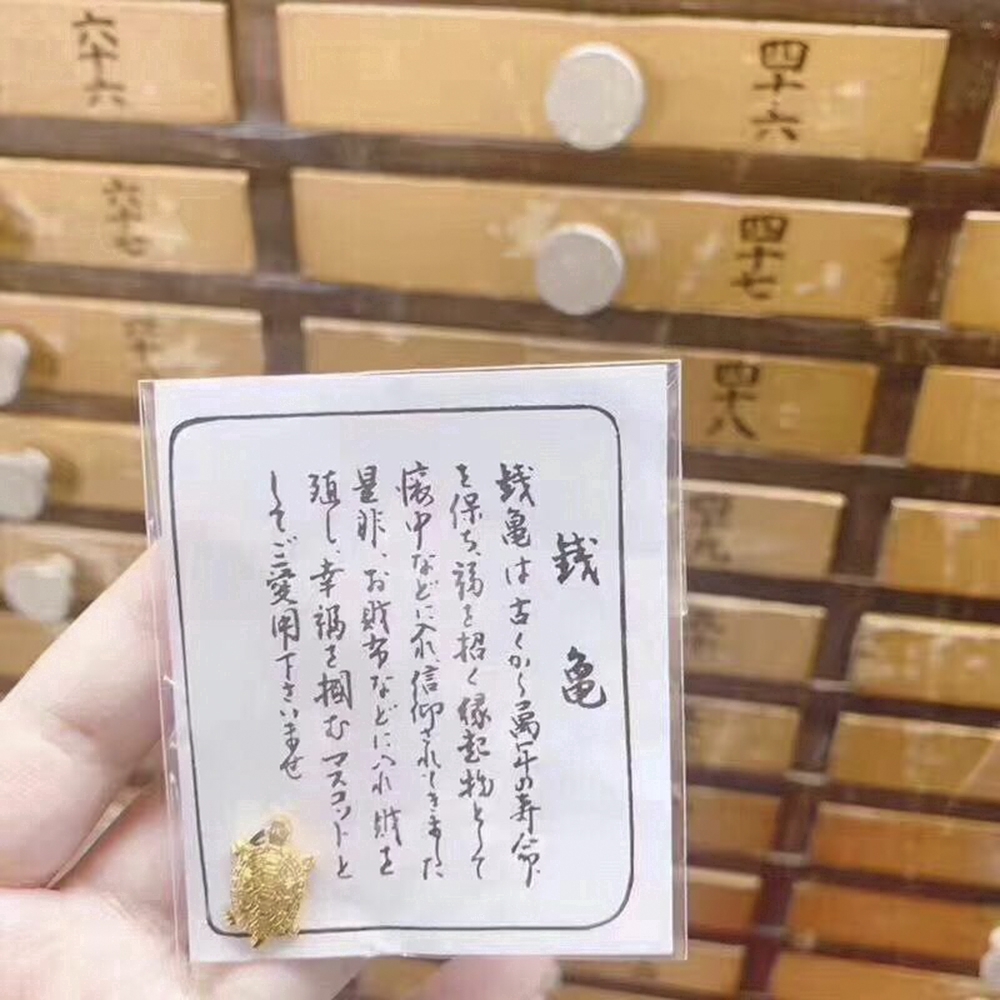 銭亀
銭亀は古くから萬年の寿命
を保ち、福を招く縁起物として
懐中などに入れ、信仰されてきました
是非、お財布などに入れ財を
殖し、幸福を掴むマスコットと
してご愛用下さいませ
四十六
四十七
四十八
四十九
六十六
六十七